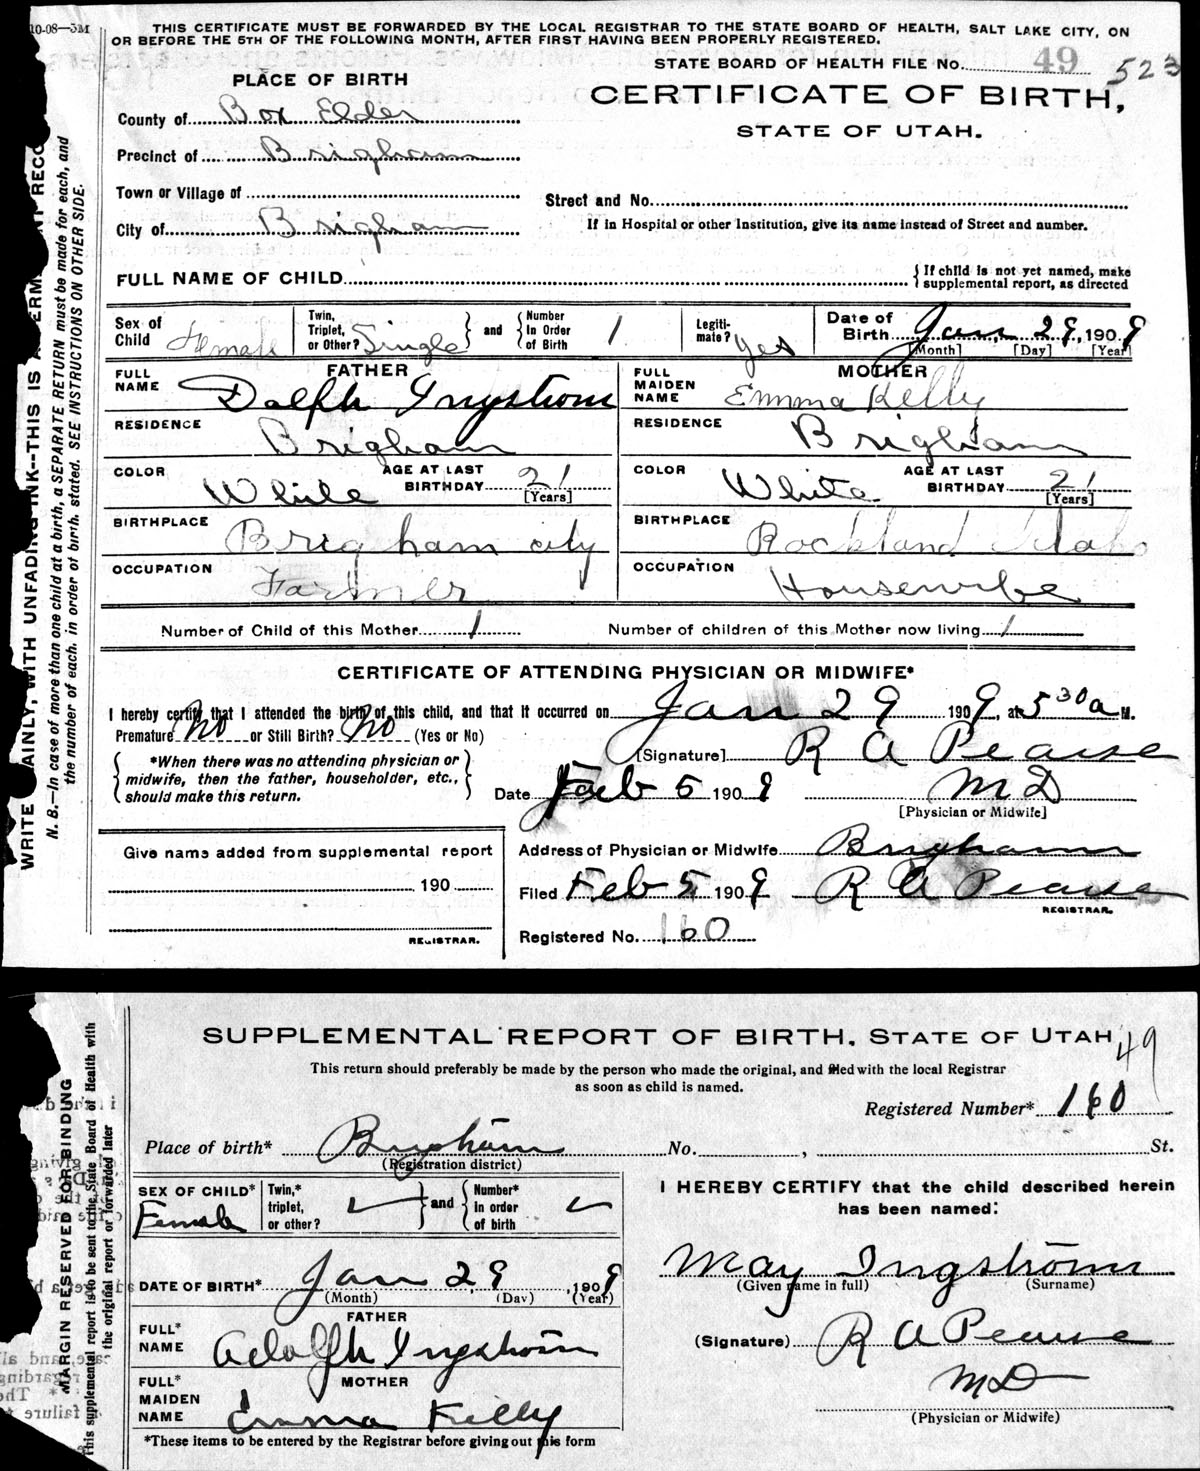 10-08—3M
THIS CERTIFICATE MUST BE FORWARDED BY THE LOCAL REGISTRAR TO THE STATE BOARD OF HEALTH, SALT LAKE CITY, ON
OR BEFORE THE 5TH OF THE FOLLOWING MONTH, AFTER FIRST HAVING BEEN PROPERLY REGISTERED.
STATE BOARD OF HEALTH FILE No. 49 523
PLACE OF BIRTH
CERTIFICATE OF BIRTH,
STATE OF UTAH.
County of Box Elder
Precinct of Brigham
Town or Village of
Street and No.
City of Brigham
If in Hospital or other Institution, give its name instead of Street and number.
FULL NAME OF CHILD
If child is not yet named, make
supplemental report, as directed
Sex of Child Female
Twin, Triplet, or Other? Single
and
Number In Order of Birth 1
Legiti-mate? yes
Date of Birth Jan. 29, 1909
[Month] [Day] [Year]
FATHER
FULL NAME Dolph Yngstrom
RESIDENCE Brigham
COLOR White
AGE AT LAST BIRTHDAY 21
[Years]
BIRTHPLACE Brigham city
OCCUPATION Farmer
MOTHER
FULL MAIDEN NAME Emma Kelly
RESIDENCE Brigham
COLOR White
AGE AT LAST BIRTHDAY 21
[Years]
BIRTHPLACE Rockland Idaho
OCCUPATION Housewife
Number of Child of this Mother 1
Number of children of this Mother now living 1
CERTIFICATE OF ATTENDING PHYSICIAN OR MIDWIFE*
I hereby certify that I attended the birth of this child, and that it occurred on Jan 29 1909, at 5 30 a M.
Premature No or Still Birth? No (Yes or No)
[Signature] R A Pearse
*When there was no attending physician or
midwife, then the father, householder, etc.,
should make this return.
Date Feb 5 1909 M D
[Physician or Midwife]
Give name added from supplemental report
190
REGISTRAR.
Address of Physician or Midwife Brigham
Filed Feb 5 1909 R A Pearse
REGISTRAR.
Registered No. 160
N. B.—In case of more than one child at a birth, a SEPARATE RETURN must be made for each, and
the number of each, in order of birth, stated. SEE INSTRUCTIONS ON OTHER SIDE.
SUPPLEMENTAL REPORT OF BIRTH, STATE OF UTAH 49
This return should preferably be made by the person who made the original, and filed with the local Registrar
as soon as child is named.
Registered Number* 160
Place of birth* Brigham No. , St.
(Registration district)
SEX OF CHILD* Female
Twin,* triplet, or other?
and
Number* in order of birth
I HEREBY CERTIFY that the child described herein
has been named:
DATE OF BIRTH* Jan 29, 1909
(Month) (Day) (Year)
May Ingström
(Given name in full) (Surname)
FATHER
FULL* NAME Adolph Yngström
(Signature) R A Pearse
MOTHER
FULL* MAIDEN NAME Emma Kelly
M D
(Physician or Midwife)
*These items to be entered by the Registrar before giving out this form
MARGIN RESERVED FOR BINDING
This supplemental report is to be sent to the State Board of Health with
the original report or forwarded later